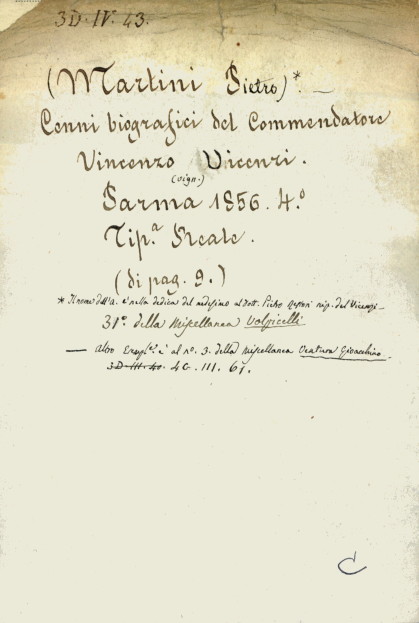 3D. IV. 43.
(Martini Pietro)*. —
Cenni biografici del Commendatore
Vincenzo Vicenzi.
(sign.)
Parma 1856. 4.º
Tip.ª Reale.
(di pag. 9.)
* Il nome dell'a. è nella dedica del medesimo al Dott. Pietro nip. del Vicenzi —
31º. della Miscellanea Volpicelli
— Altro è al nº. 3. della Miscellanea Ventura Gioacchino.
3D. III. 40. 4C. III. 61.
C